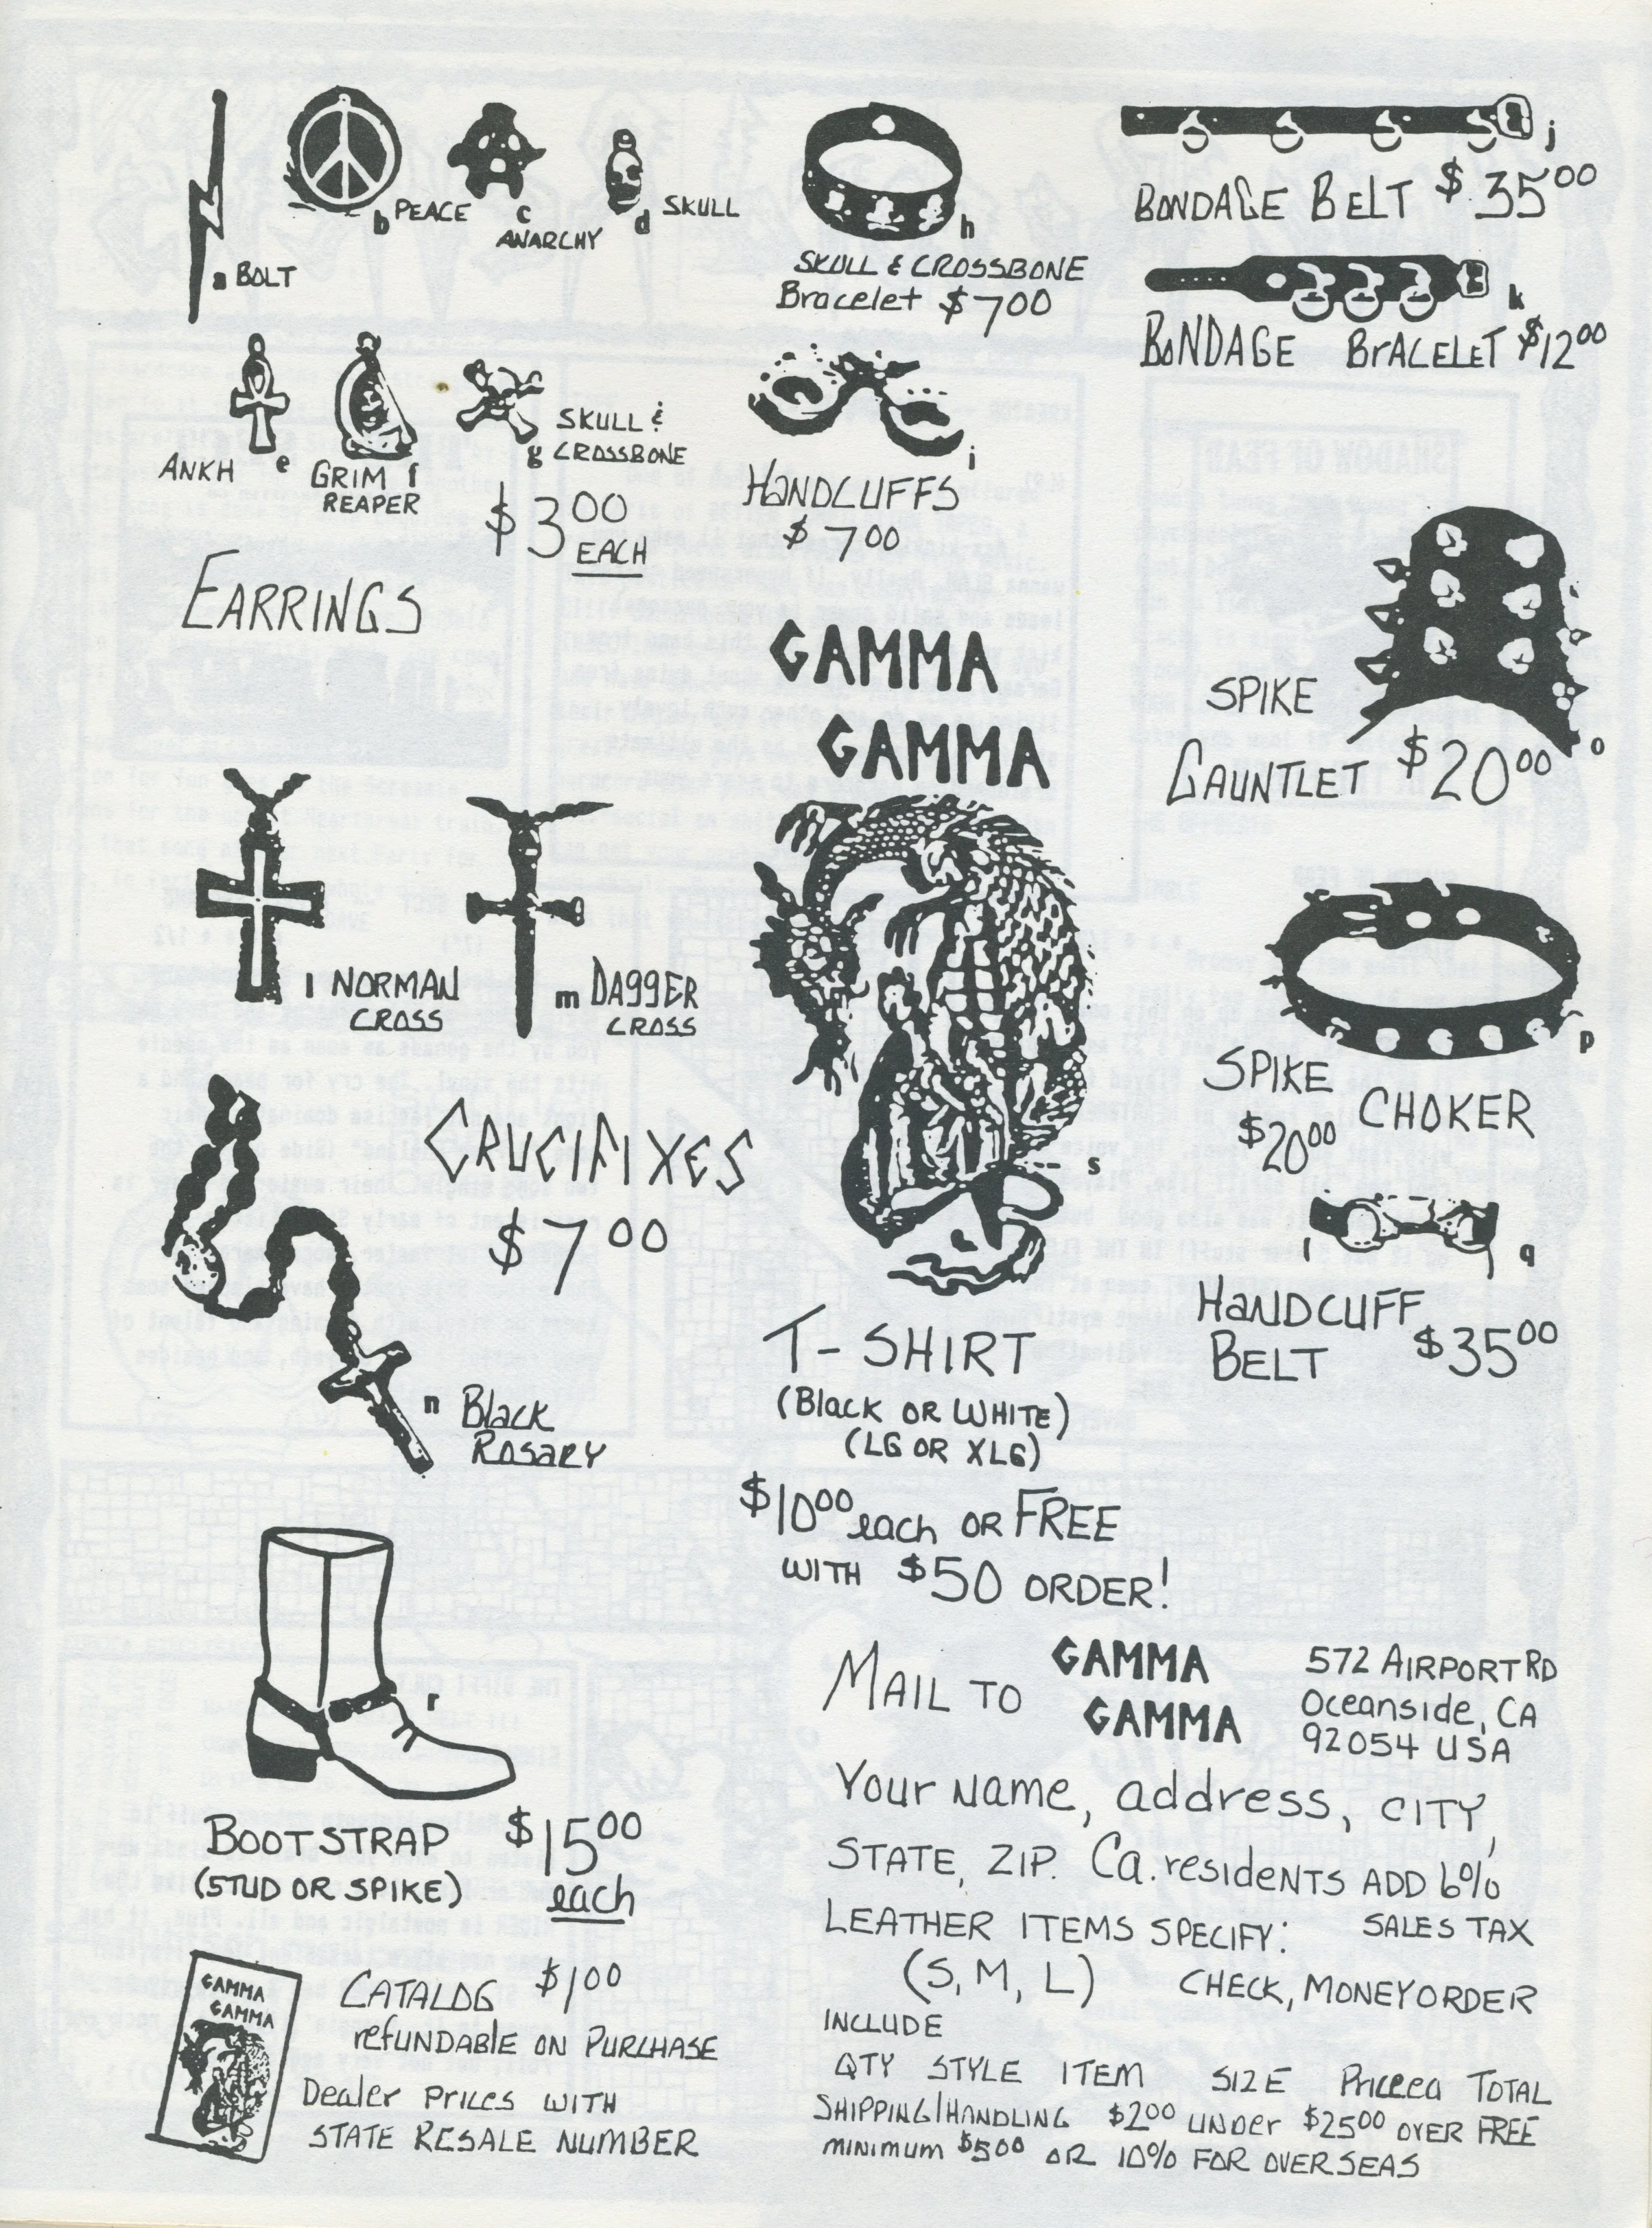 a BOLT
b PEACE
c ANARCHY
d SKULL
ANKH e
GRIM f
REAPER
g SKULL &
CROSSBONE
$3.00
EACH
EARRINGS
h
SKULL & CROSSBONE
Bracelet $7.00
i
HANDCUFFS
$7.00
j
BONDAGE BELT $35.00
k
BONDAGE BRACELET $12.00
GAMMA
GAMMA
s
T-SHIRT
(Black OR WHITE)
(LG OR XLG)
$10.00 each OR FREE
WITH $50 ORDER!
SPIKE
GAUNTLET $20.00
o
p
SPIKE CHOKER
$20.00
q
HANDCUFF
BELT $35.00
l NORMAN
CROSS
m DAGGER
CROSS
CRUCIFIXES
$7.00
n Black
ROSARY
r
BOOTSTRAP $15.00
(STUD OR SPIKE) each
GAMMA
GAMMA
CATALOG $1.00
refUNDABLE ON PURCHASE
Dealer Prices WITH
STATE RESALE NUMBER
MAIL TO GAMMA
GAMMA
572 AIRPORT RD
Oceanside, CA
92054 USA
Your Name, address, CITY,
STATE, ZIP. Ca. residENTS ADD 6%
SALES TAX
LEATHER ITEMS SPECIFY:
(S, M, L) CHECK, MONEYORDER
INCLUDE
QTY STYLE ITEM SIZE Price ea TOTAL
SHIPPING/HANDLING $2.00 UNDer $25.00 OVER FREE
minimum $5.00 OR 10% FOR OVERSEAS